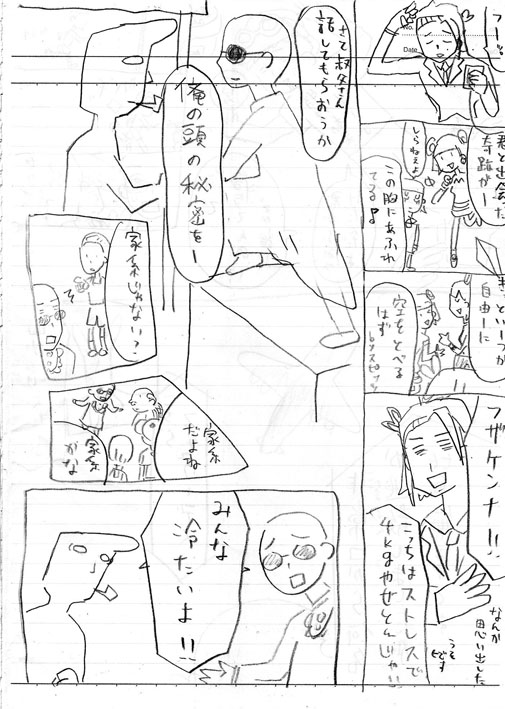 フーッ
No.
Date
君と出会った
奇跡がー
しらねぇよ
この胸にあふれ
てる♪
きっといーつか
自由ーに
空をとべる
はず
byスピッツ
フザケンナ!!
こっちはストレスで
4kgやせとんじゃい!!
なんか
思い出した
うそ
です
さて叔父さん
話してもらおうか
俺の頭の秘密をー
家系じゃない?
家系
だよね
家系
かな
みんな
冷たいよ!!